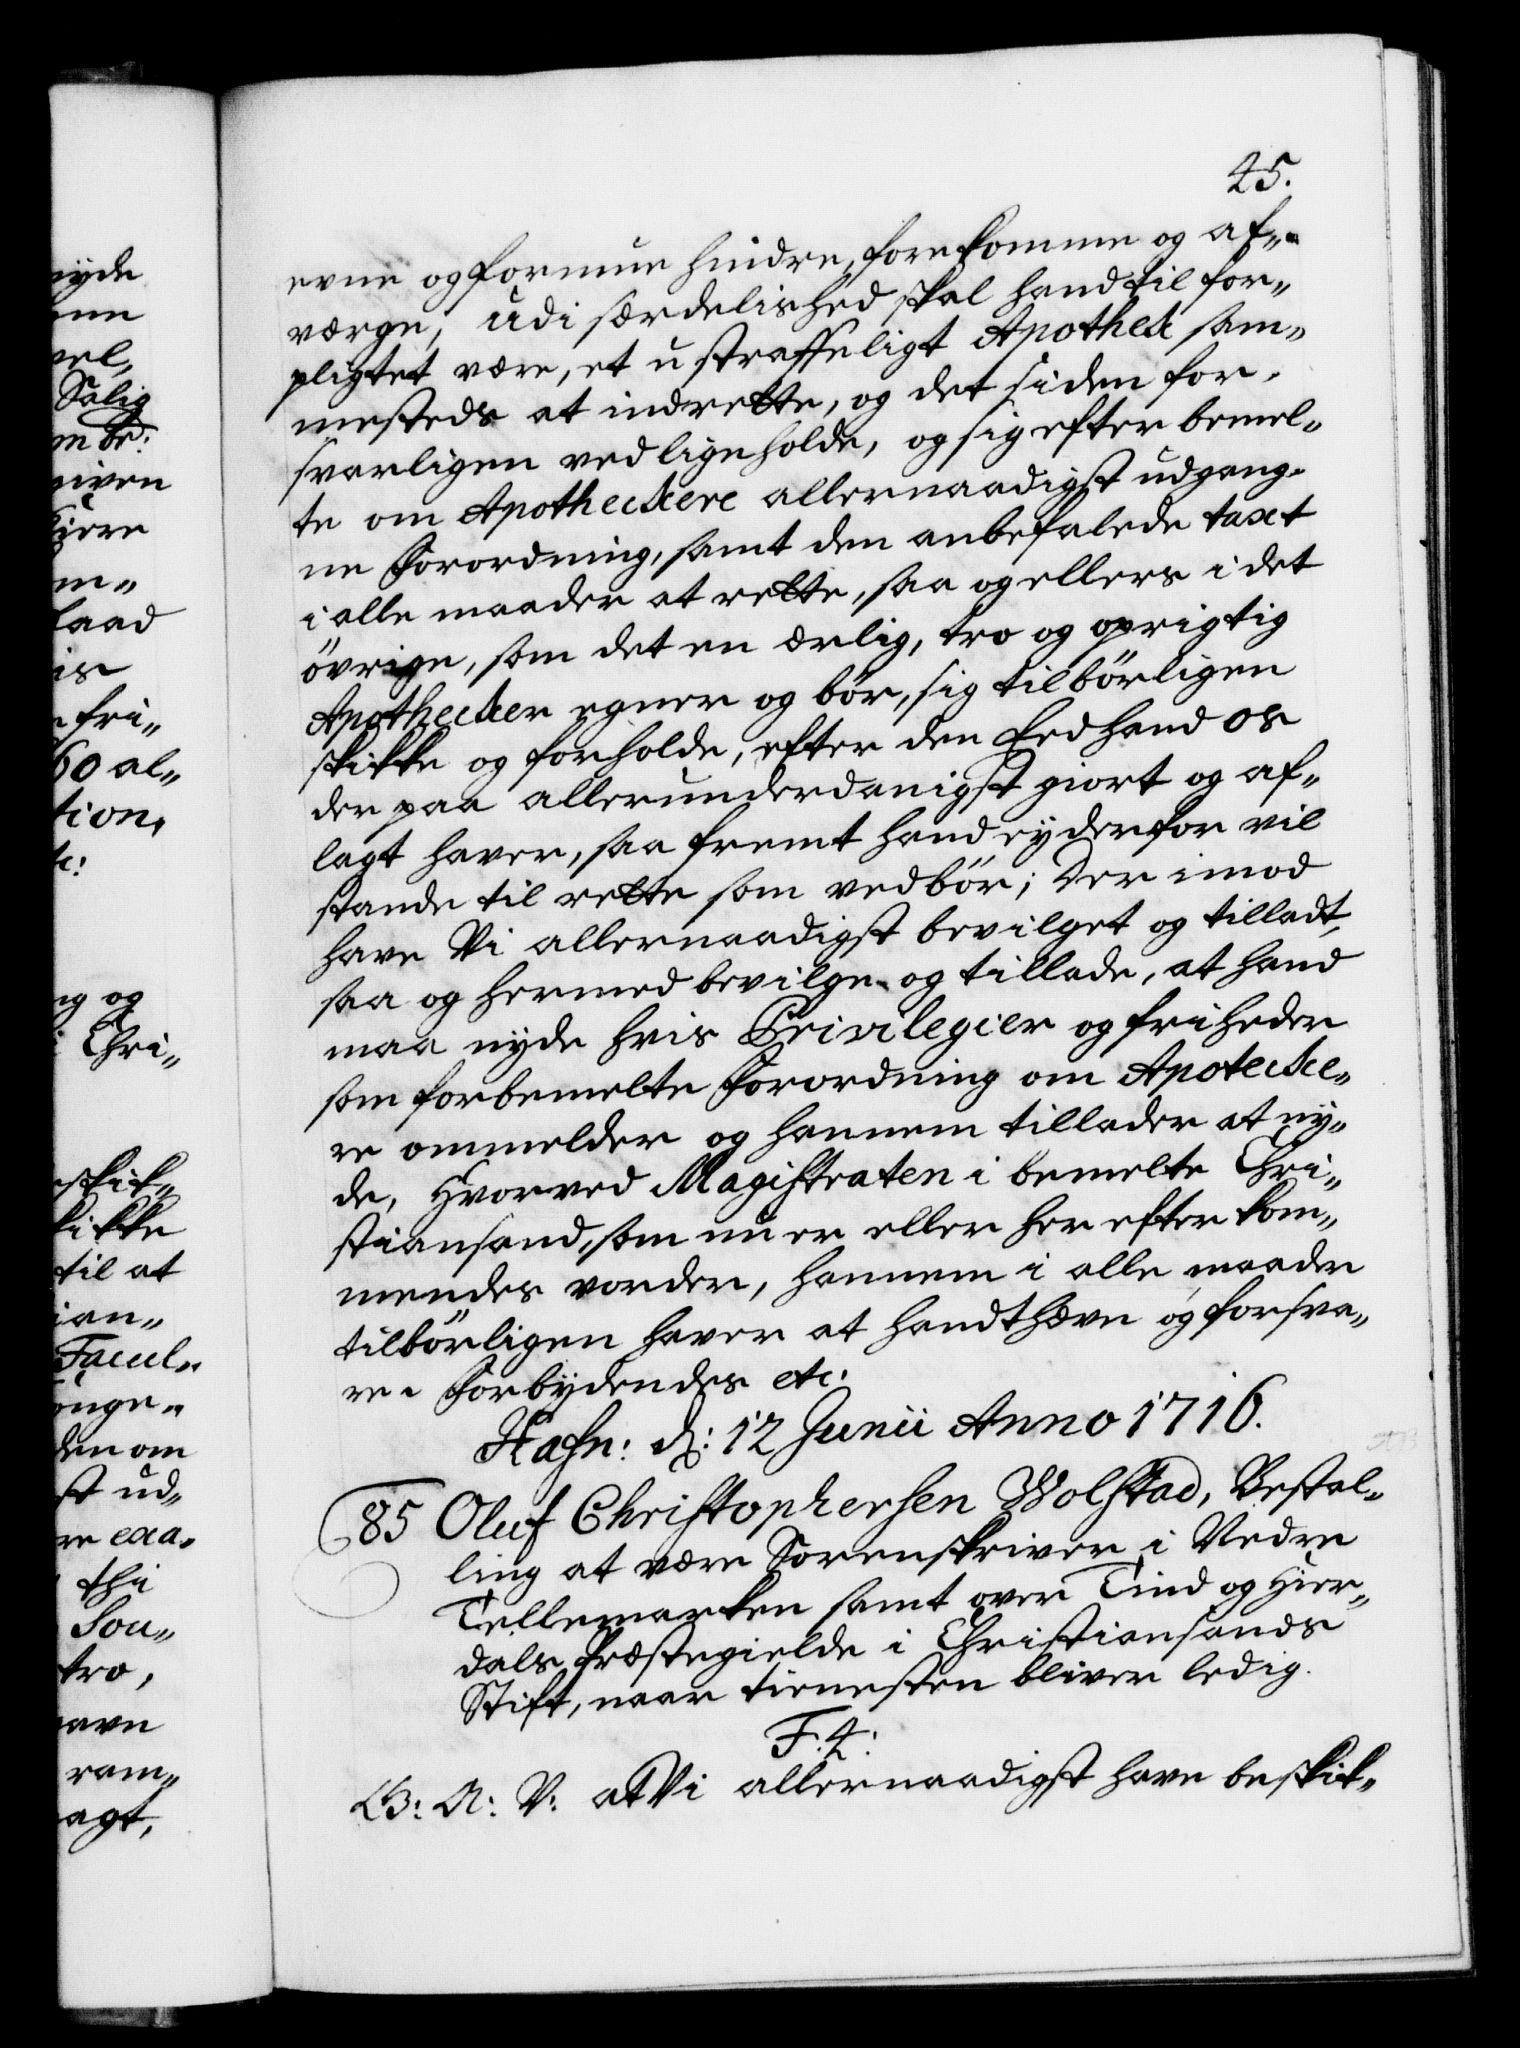 45.
evne og formue hindre, forekomme og af„
værge, udi særdelished skal hand til for„
pligtet være, et u straffeligt Apotheck sam„
mesteds at indrette, og det siden for„
svarligen ved lige holde, og sig efter bemel„
te om Apotheckere allernaadigst udgang„
ne Forordning, samt den anbefalede taxt
i alle maader at rette, saa og ellers i det
övrige, som det en ærlig, tro og oprigtig
Apothecker egner og bör, sig tilbörligen
skikke og forholde, efter den Eed hand os
der paa allerunderdanigst giort og af„
lagt haver, saa fremt hand ey derfor vil
stande til rette som vedbör; Der imod
have Vi allernaadigst bevilget og tilladt,
saa og hermed bevilge og tillade, at hand
maa nyde hvis Privilegier og friheder
som forbemelte Forordning om Apotecke„
re ommelder og hannem tillader at ny„
de, Hvorved Magistraten i bemelte Chri„
stiansand, som nu er eller her efter kom„
mendes vorder, hannem i alle maader
tilbörligen haver at handthæve og forsva„
re. Forbydendes etc:
Hafn: d: 12 Junii Anno 1716.
85 Oluf Christophersen Wolstad, Bestal„
ling at være Sorenskriver i Nedre
Tellemarken samt over Tind og Hier„
dals Præstegielde i Christiansands
Stift, naar tienesten bliver ledig.
F. 4:
G: A: V: at Vi allernaadigst have beskik„
nyde
Salig
given
laad
is
fri„
60 al„
tion,
tc:
ng og
Chri„
skik„
kikke
til at
ian„
Facul„
den om
st ud„
re exa„
thi
Sou„
tro,
ram„
agt,